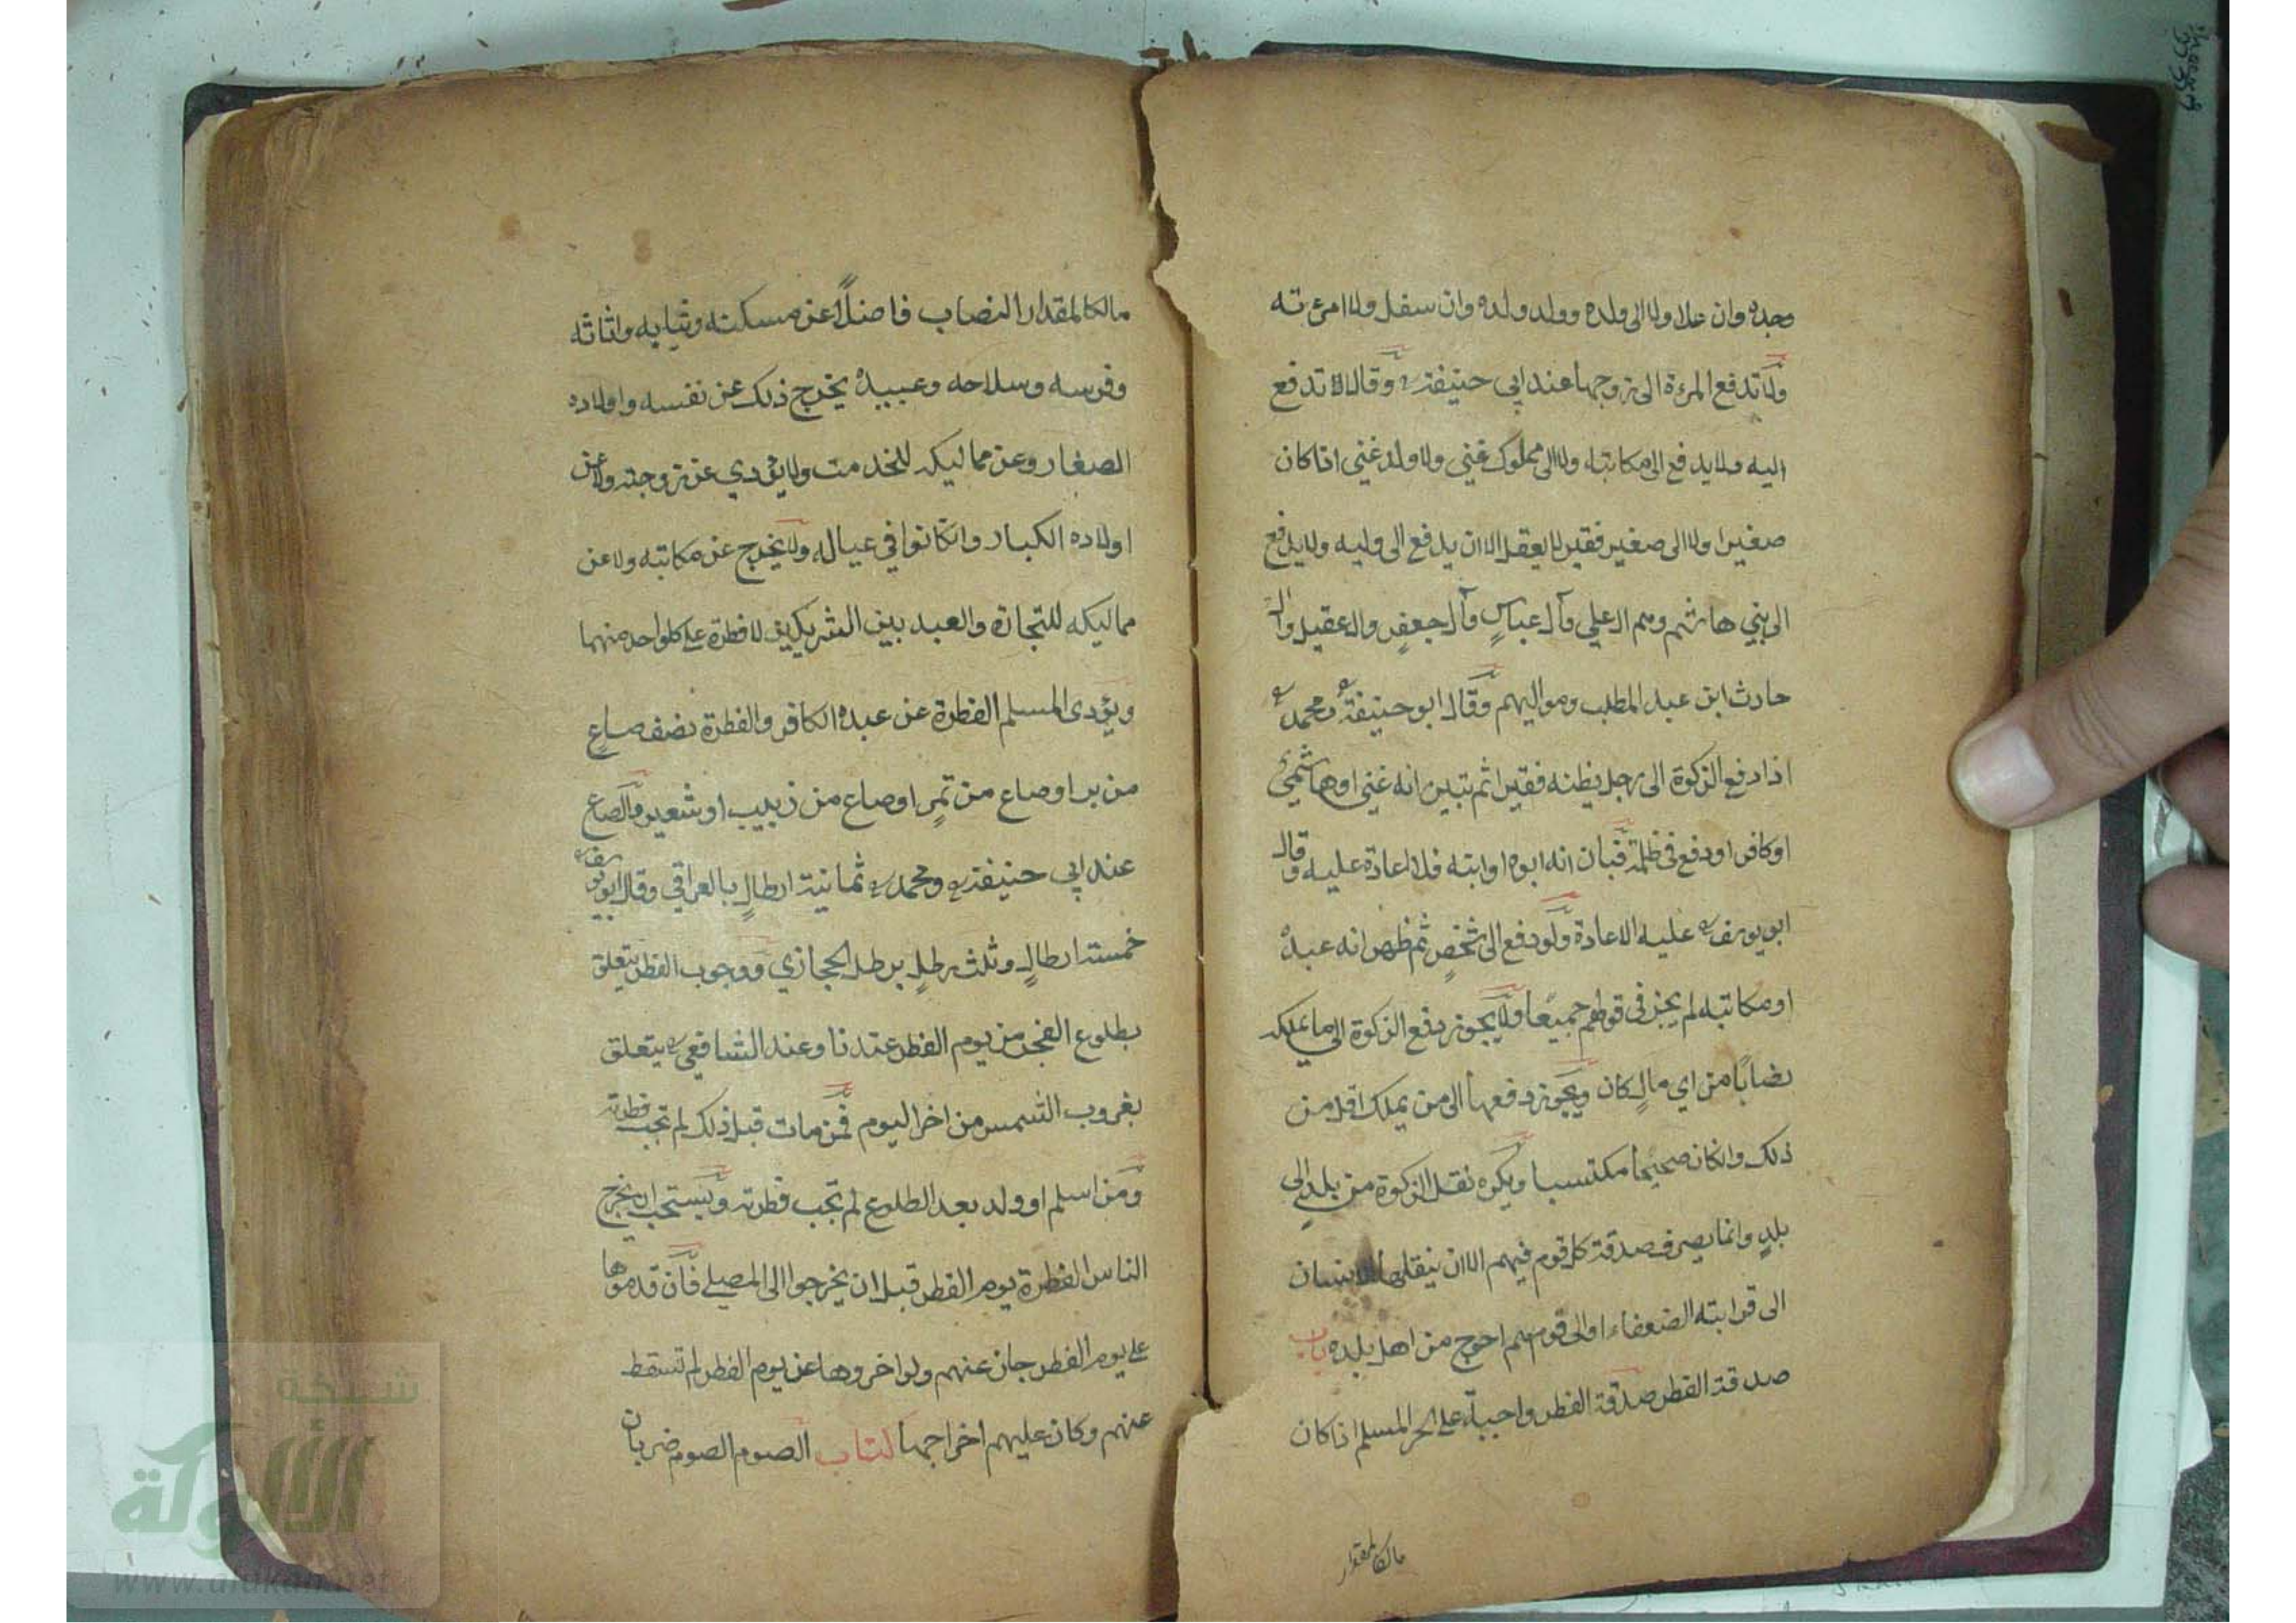 وجده وان علا ولا الى ولده وولد ولده وان سفل ولا امرءته
ولا تدفع المرءة الى زوجها عند ابي حنيفة وقالا تدفع
اليه ولا يدفع الى مكاتبه ولا الى مملوك غني ولا ولد غني اذا كان
صغيرا ولا الى صغير فقير لا يعقل الا ان يدفع الى وليه ولا يدفع
الى بني هاشم وهم ال علي وآل عباسٍ وآل جعفرٍ وال عقيل وال
حادث ابن عبد المطلب ومواليهم وقال ابو حنيفة ومحمد
اذا دفع الزكوة الى رجل يظنه فقيرا ثم تبين انه غني او هاشميٌ
او كافر او دفع في ظلمة فبان انه ابوه او ابنه فلا اعادة عليه وقال
ابو يوسف عليه الاعادة ولو دفع الى شخصٍ ثم ظهر انه عبده
او مكاتبه لم يجز في قولهم جميعا ولا يجوز دفع الزكوة الى ما يملك
نصابًا من اي مالٍ كان ويجوز دفعها الى من يملك اقل من
ذلك وانكان صحيحا مكتسبا ويكره نقل الزكوة من بلدٍ الى
بلدٍ وانما يصرف صدقة كل قوم فيهم الا ان ينقلها الانسان
الى قرابته الضعفاء او الى قوم هم احوج من اهل بلده باب
صدقة الفطر صدقة الفطر واجبة على الحر المسلم اذا كان
مالكا لمقدار
مالكا لمقدار النصاب فاضلًا عن مسكنه وثيابه واثاثه
وفرسه وسلاحه وعبيده يخرج ذلك عن نفسه واولاده
الصغار وعن مماليكه للخدمت ولا يؤدي عن زوجته ولا عن
اولاده الكبار وانكانوا في عياله ولا يخرج عن مكاتبه ولا عن
مماليكه للتجارة والعبد بين الشريكين لا فطرة على كل واحد منهما
ويؤدى المسلم الفطرة عن عبده الكافر والفطرة نصف صاعٍ
من بر او صاع من تمرٍ او صاع من زبيب او شعير والصاع
عند ابي حنيفة ومحمد ثمانية ارطالٍ بالعراقي وقال ابو يوسف
خمسة ارطالٍ وثلث رطلٍ برطل الحجازي ووجوب الفطر يتعلق
بطلوع الفجر من يوم الفطر عندنا وعند الشافعي يتعلق
بغروب الشمس من اخر اليوم فمن مات قبل ذلك لم تجب فطرته
ومن اسلم او ولد بعد الطلوع لم تجب فطرته ويستحب ان يخرج
الناس الفطرة يوم الفطر قبل ان يخرجوا الى المصلى فان قدموها
على يوم الفطر جاز عنهم ولو اخروها عن يوم الفطر لم تسقط
عنهم وكان عليهم اخراجها كتاب الصوم الصوم ضربان
شبكة
الألوكة
www.alukah.net